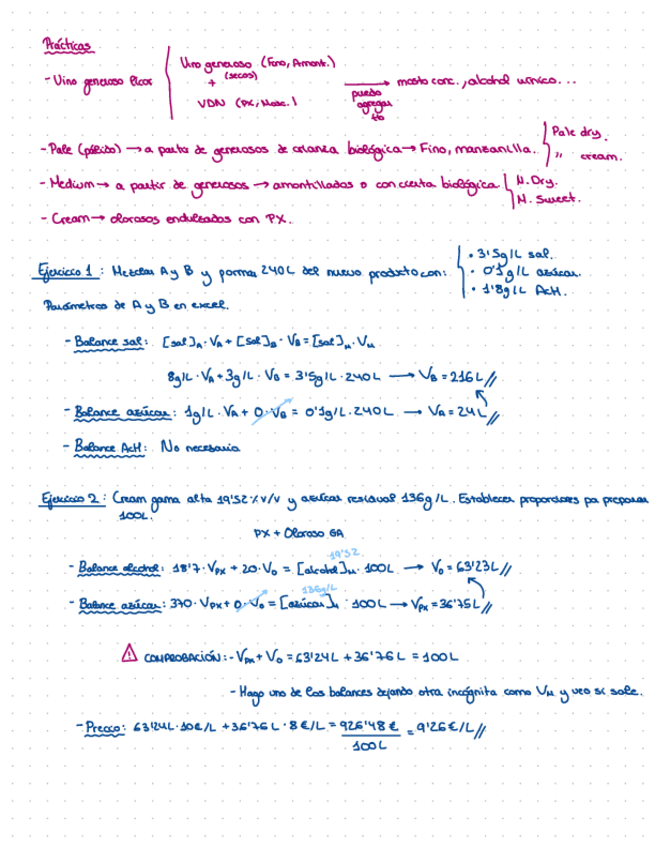 Prácticas
- Vino generoso licor
Vino generoso (Fino, Amont.)
(secos)
+
VDN (PX, Mosc.)
puedo agregar
tb
mosto conc., alcohol vínico...
- Pale (pálido) → a partir de generosos de crianza biológica → Fino, manzanilla.
Pale dry.
" cream.
- Medium → a partir de generosos → amontillados o con cierta biológica.
M. Dry.
M. Sweet.
- Cream → olorosos endulzados con PX.
Ejercicio 1: Mezclar A y B y formar 240L del nuevo producto con:
• 3'5g/L sal.
• 0'1g/L azúcar.
• 1'8g/L AcH.
Parámetros de A y B en excel.
- Balance sal: [sal]A · VA + [sal]B · VB = [sal]M · VM
8g/L · VA + 3g/L · VB = 3'5g/L · 240L → VB = 216L//
- Balance azúcar: 1g/L · VA + 0 · VB = 0'1g/L · 240L → VA = 24L//
- Balance AcH: No necesaria
Ejercicio 2: Cream gama alta 19'52 % v/v y azúcar residual 136g/L. Establecer proporciones pa preparar
100L.
PX + Oloroso GA
19'52
- Balance alcohol: 18'7 · VPX + 20 · VO = [alcohol]M · 100L → VO = 63'23L//
136g/L
- Balance azúcar: 370 · VPX + 0 · VO = [azúcar]M · 100L → VPX = 36'75L//
⚠ COMPROBACIÓN: - VPX + VO = 63'24L + 36'76L = 100L
- Hago uno de los balances dejando otra incógnita como VM y veo si sale.
- Precio: 63'24L · 10€/L + 36'76L · 8€/L = 926'48€ = 9'26€/L//
100L